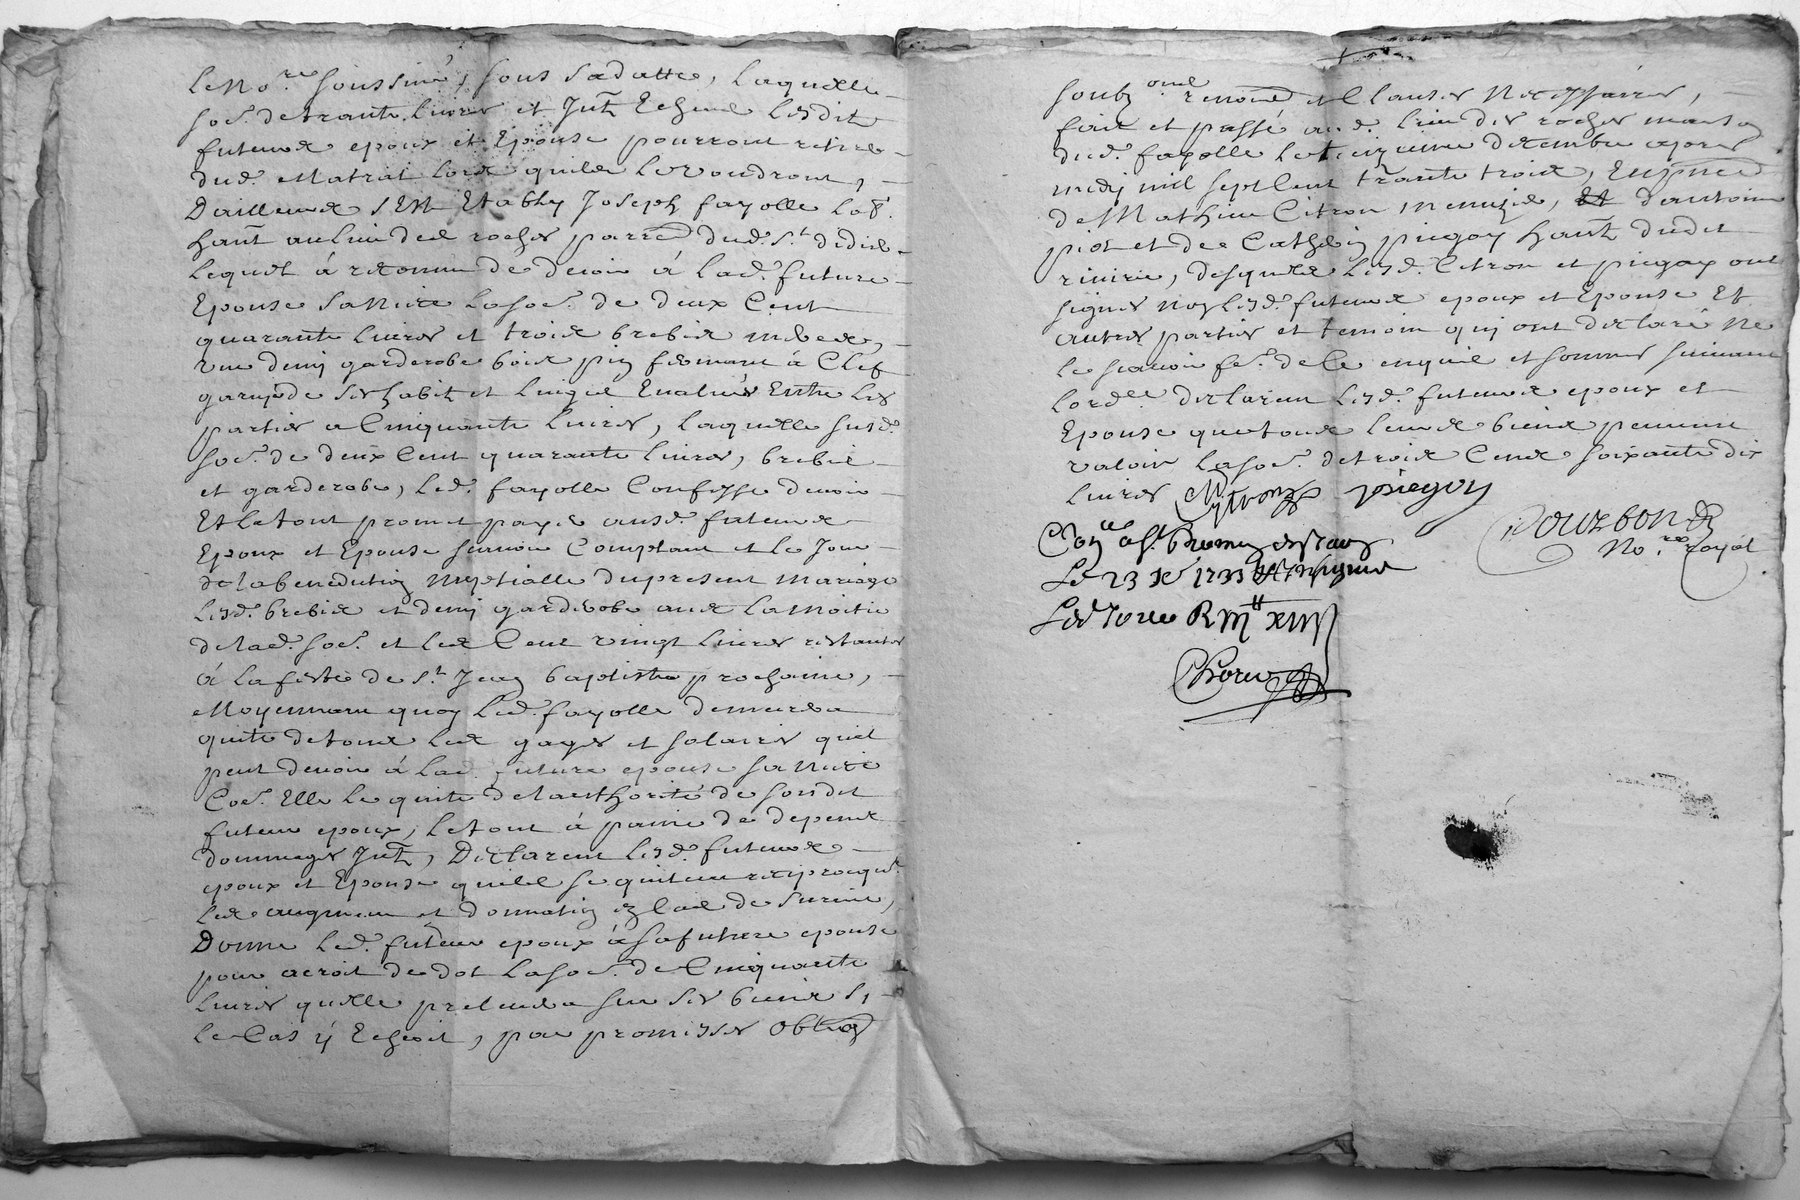 le No.re soussiné, sous sa datte, laquelle
so.e de trante livres et Jnt. Echeus lesdits
futeurs epoux et Epouse pourront retire
dud. Matrat lors quils le voudront,
D'ailleurs s'Est Etably Joseph fayolle lab.
hant au lieu des roches parre dud. S.t didie
lequel à reconnu de devoir à lad. future
Epouse sa Niece la so.e de deux Cent
quarante livres et trois brebis
une demy garderobe bois pin fermant à Clef
garnye de ses habits et linges Evalués Entre les
parties a Cinquante livres, laquelle susd.
so.e de deux Cent quarante livres, brebis
et garderobe, led. fayolle Confesse devoir
Et le tout promet payer ausd. futeurs
Epoux et Epouse scavoir Comptant et le Jour
de la benediction nuptialle du present mariage
lesd. brebis et demy garderobe avec la moitie
de lad. so.e et les Cent vingt livres restantes
à la feste de s.t Jean baptiste prochaine,
Moyennant quoy led. fayolle demeurera
quitte de tous les gages et salaires quil
peut devoir à lad. future epouse sa niece
Co.e Elle le quitte de l'authorité de sondit
futeur epoux, le tout à paine de depens
dommages Jnt., Declarent lesd. futeurs
epoux et Epouse quils se quittent reciproqu.t
les augment et donnation de survie,
Donne led. futeur epoux à sa future epouse
pour acroit de dot la so.e de Cinquante
livres quelle prelevera sur ses biens sy
le Cas y Echeoit, par promisses oblig
soubz.ons renond et Clauses Necessaires,
fait et passé aud. lieu des roches maison
dud. fayolle le decembre apres
midy mil sept Cent trante trois, En pnce
de Mathieu Citron menuzier, Et d'antoine
piot et de Catherin piegay hant. dudit
riverie, desquels lesd. Citron et piegay ont
signes non lesd. futeurs epoux et Epouse Et
autres parties et temoin qui ont declaré ne
le scavoir fe. de Ce enquis et sommes suivant
lord.ce declarent lesd. futeurs epoux et
Epouse que tous leurs biens peuvent
valoir la so.e de trois Cens soixante dix
livres Cytron piegay
Bourbon
No.re royal
Con.lé à S.t
Le 23 Xe 1733